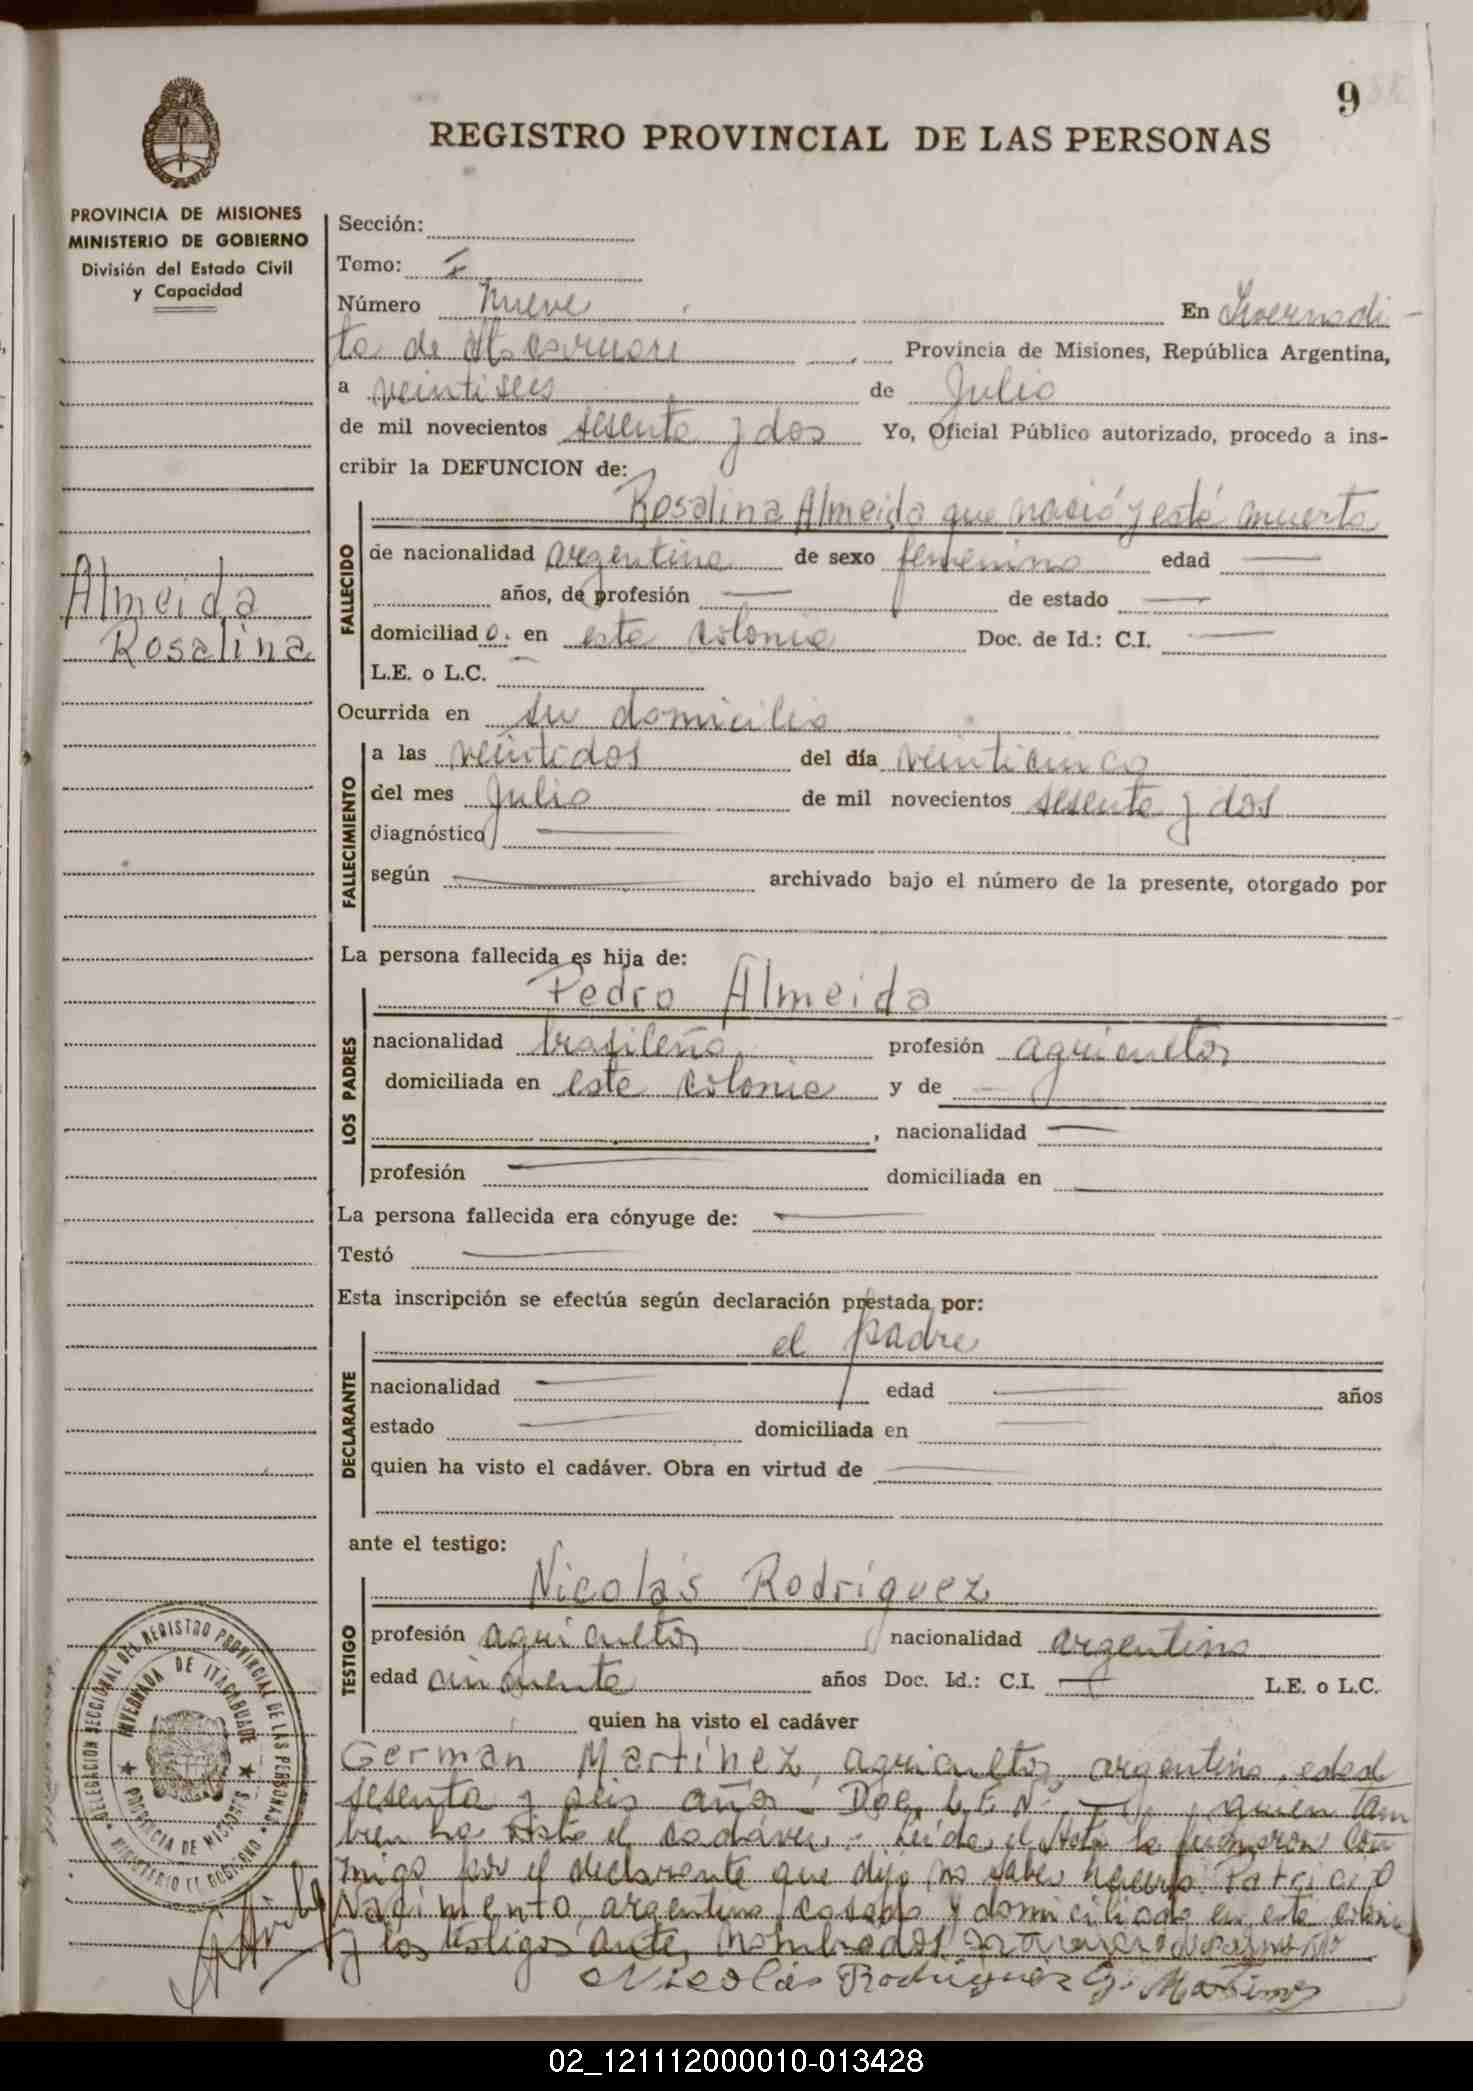 9
REGISTRO PROVINCIAL DE LAS PERSONAS
PROVINCIA DE MISIONES
MINISTERIO DE GOBIERNO
División del Estado Civil
y Capacidad
Almeida
Rosalina
Sección:
Tomo: I
Número nueve En Invernadi
ta de Itacaruaré Provincia de Misiones, República Argentina,
a veintiseis de Julio
de mil novecientos sesenta y dos Yo, Oficial Público autorizado, procedo a ins-
cribir la DEFUNCION de:
FALLECIDO
Rosalina Almeida que nació y está muerta
de nacionalidad argentina de sexo femenino edad
años, de profesión de estado
domiciliad o. en esta colonia Doc. de Id.: C.I.
L.E. o L.C.
Ocurrida en su domicilio
FALLECIMIENTO
a las veintidos del día veinticinco
del mes Julio de mil novecientos sesenta y dos
diagnóstico
según archivado bajo el número de la presente, otorgado por
La persona fallecida es hija de:
LOS PADRES
Pedro Almeida
nacionalidad brasileño profesión agricultor
domiciliada en esta colonia y de
, nacionalidad
profesión domiciliada en
La persona fallecida era cónyuge de:
Testó
Esta inscripción se efectúa según declaración prestada por:
DECLARANTE
el padre
nacionalidad edad años
estado domiciliada en
quien ha visto el cadáver. Obra en virtud de
ante el testigo:
TESTIGO
Nicolás Rodríguez
profesión agricultor nacionalidad argentino
edad cincuenta años Doc. Id.: C.I. L.E. o L.C.
quien ha visto el cadáver
German Martinez, agricultor, argentino, edad
sesenta y seis años - Doc. L.E. Nº quien tam
bien ha visto el cadáver.- Leída el Acta la firmaron con
migo por el declarante que dijo no saber hacerlo Patricio
Nacimento, argentino, casado y domiciliado en esta colonia
y los testigos ante nombrados
Nicolás Rodriguez G. Martinez
DELEGACION SECCIONAL DEL REGISTRO PROVINCIAL DE LAS PERSONAS
MINISTERIO DE GOBIERNO
INVERNADA DE ITACARUARE
PROVINCIA DE MISIONES
02_121112000010-013428